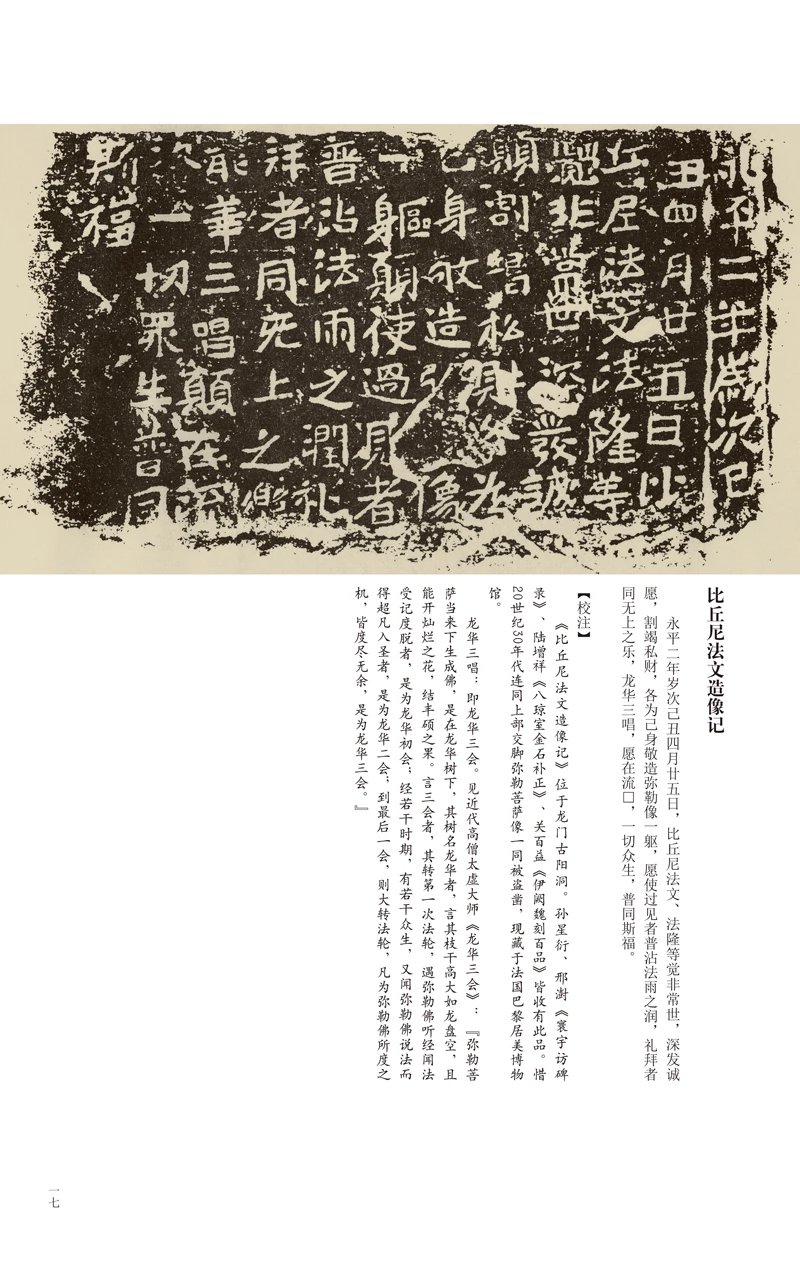 永平二年歲次己
丑四月廿五日比
丘尼法文法隆等
覺非常世深发誠
願割竭私財各为
己身敬造弥像
一軀願使過見者
普沾法雨之潤礼
拜者同无上之樂
龍華三唱願在流
次一切眾生普同
斯福
比丘尼法文造像记
永平二年岁次己丑四月廿五日，比丘尼法文、法隆等觉非常世，深发诚
愿，割竭私财，各为己身敬造弥勒像一躯，愿使过见者普沾法雨之润，礼拜者
同无上之乐，龙华三唱，愿在流□，一切众生，普同斯福。
【校注】
《比丘尼法文造像记》位于龙门古阳洞。孙星衍、邢澍《寰宇访碑
录》、陆增祥《八琼室金石补正》、关百益《伊阙魏刻百品》皆收有此品。惜
20世纪30年代连同上部交脚弥勒菩萨像一同被盗凿，现藏于法国巴黎居美博物
馆。
龙华三唱：即龙华三会。见近代高僧太虚大师《龙华三会》：『弥勒菩
萨当来下生成佛，是在龙华树下，其树名龙华者，言其枝干高大如龙盘空，且
能开灿烂之花，结丰硕之果。言三会者，其转第一次法轮，遇弥勒佛听经闻法
受记度脱者，是为龙华初会；经若干时期，有若干众生，又闻弥勒佛说法而
得超凡入圣者，是为龙华二会；到最后一会，则大转法轮，凡为弥勒佛所度之
机，皆度尽无余，是为龙华三会。』
一七